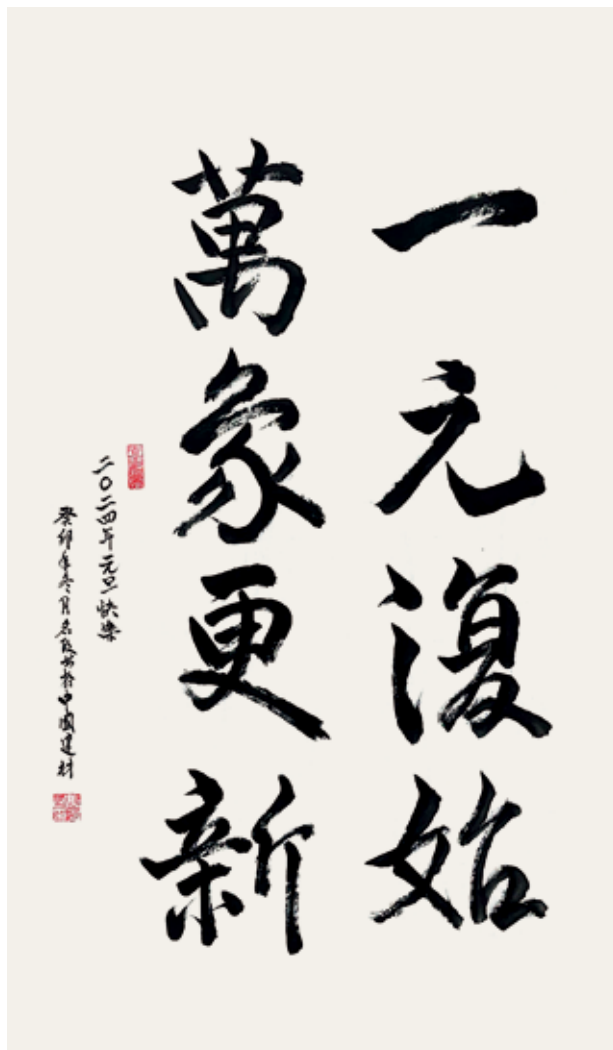 一元復始
萬象更新
二〇二四年元旦快樂
癸卯年冬月 书於中國建材